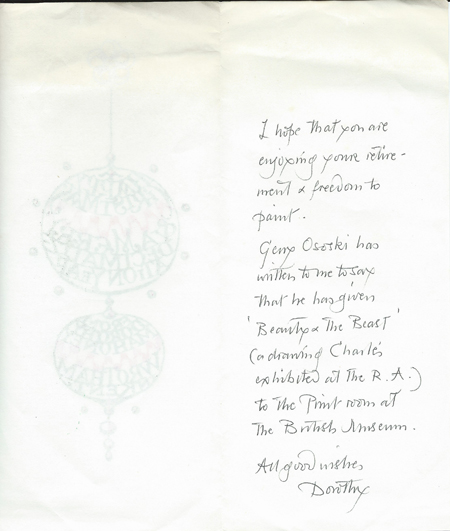 I hope that you are
enjoying your retire-
ment & freedom to
paint.
Gerry Ososki has
written to me to say
that he has given
'Beauty & The Beast'
(a drawing Charles
exhibited at the R.A.)
to the Print room at
the British Museum.
All good wishes
Dorothy